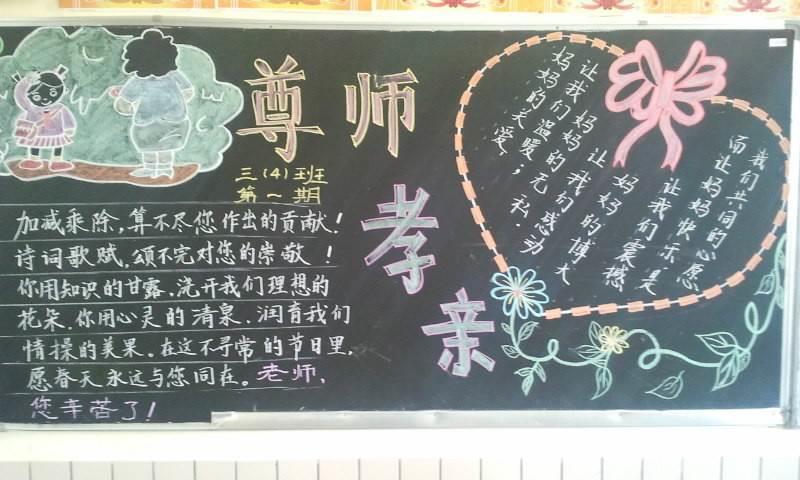 尊师
孝亲
三(4)班
第一期
加减乘除,算不尽您作出的贡献!
诗词歌赋,颂不完对您的崇敬!
你用知识的甘露、浇开我们理想的
花朵、你用心灵的清泉、润育我们
情操的美果。在这不寻常的节日里,
愿春天永远与您同在。老师,
您辛苦了!
妈妈的关爱,
让我们温暖;
妈妈的无私,
让我们感动
妈妈的博大
让我们震撼
而让妈妈快乐是
我们共同的心愿